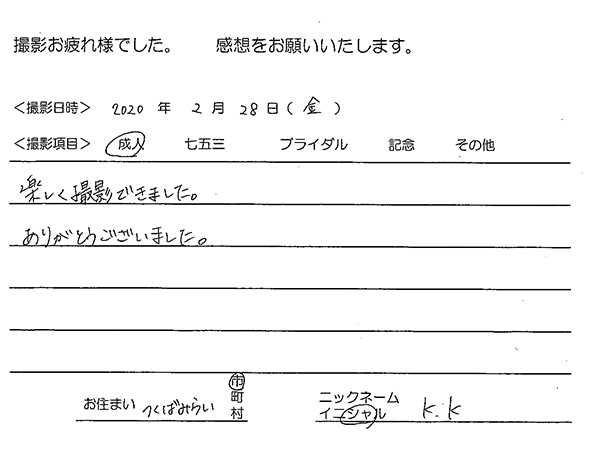 撮影お疲れ様でした。　感想をお願いいたします。
＜撮影日時＞ 2020 年 2 月 28 日 ( 金 )
＜撮影項目＞ 成人 七五三 ブライダル 記念 その他
楽しく撮影できました。
ありがとうございました。
お住まい つくばみらい 市 町 村
ニックネーム
イニシャル K.K